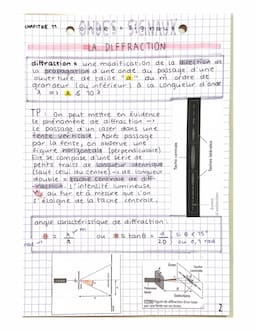 CHAPITRE 17
ONDES - SIGNAUX
LA DIFFRACTION
diffraction = une modification de la direction de
la propagation d'une onde au passage d'une
ouverture de taille "a" du m̂ ordre de
grandeur (ou inférieur) à la longueur d'onde
TP : On peut mettre en évidence
le phénomène de diffraction →
le passage d'un laser dans une
fente verticale. Après passage
par la fente, on observe une
figure horizontale (perpendiculaire)
Elle se compose d'une série de
petits traits de longueur identique
(sauf celui du centre) → de longueur
double = tache centrale de diff-
raction. L'intensité lumineuse
au fur et à mesure que l'on
s'éloigne de la tache centrale.
angle caractéristique de diffraction :
rad
θ = λ/a
m
ou
tanθ = d/2D
θ < 15°
ou 0,1 rad
Tache centrale
Écran
Tache
centrale
2